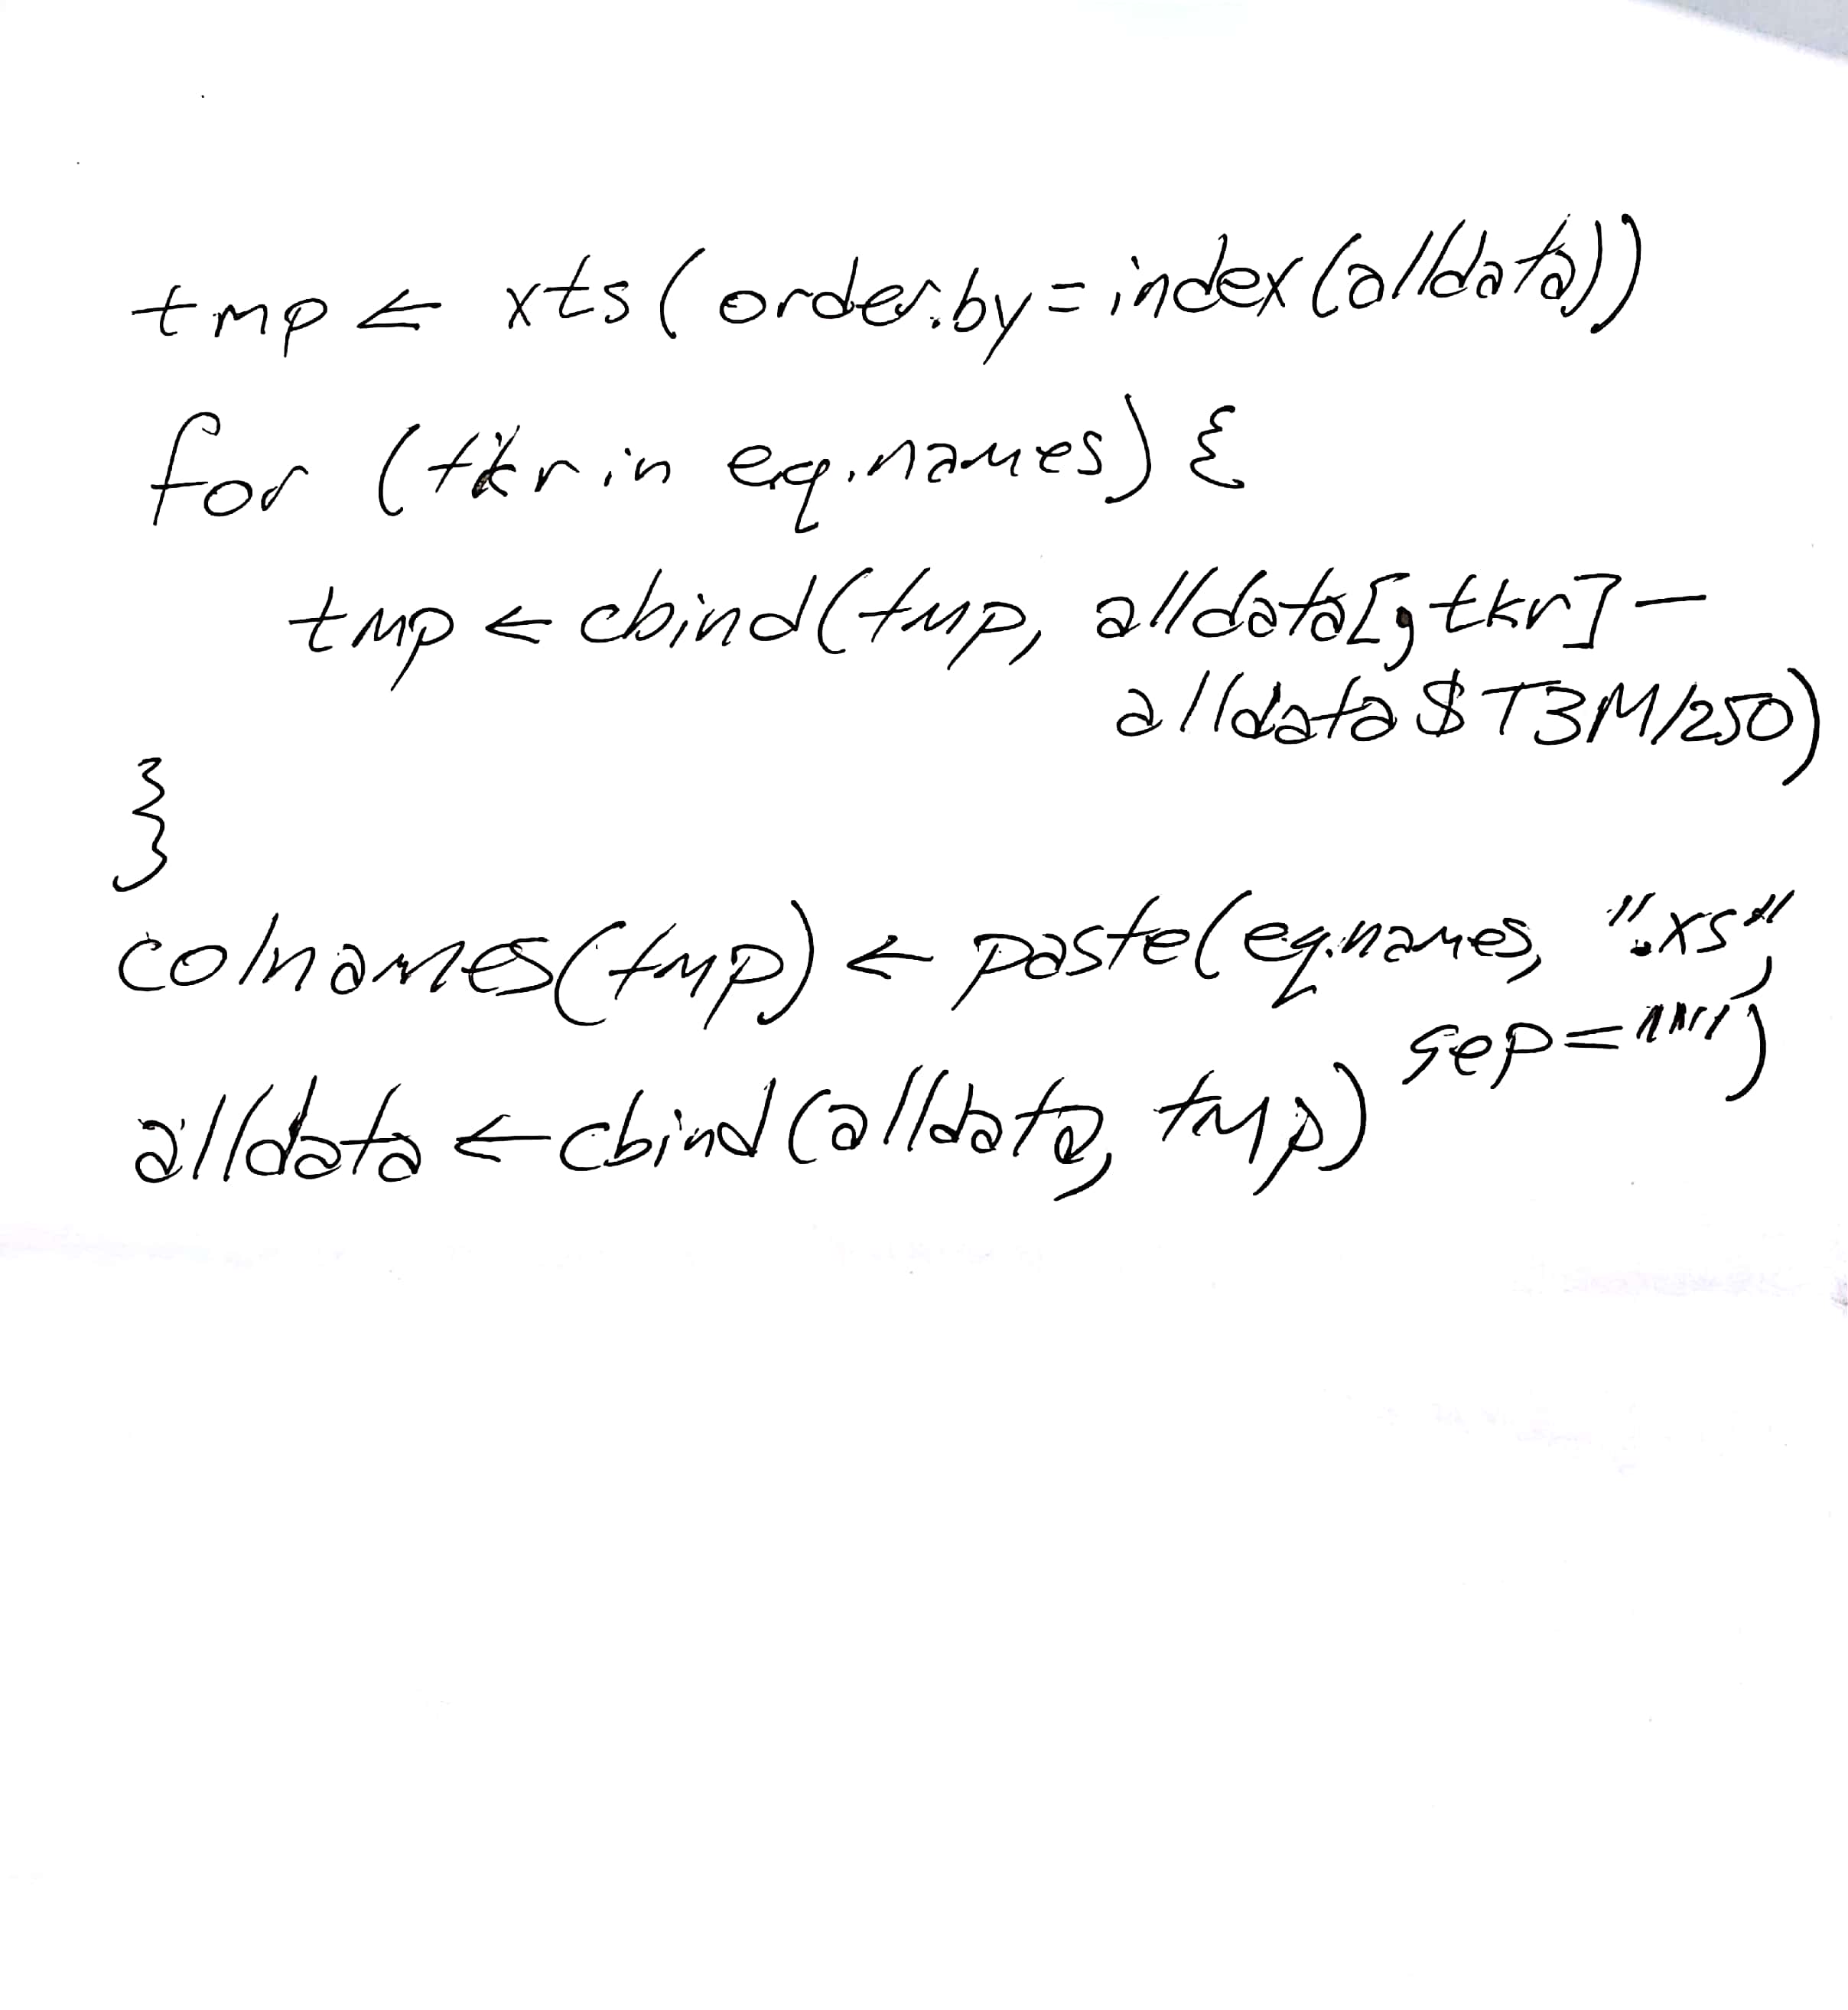 tmp <- xts(order.by=index(alldata))
for (tkr in eq.names) {
tmp <- cbind(tmp, alldata[,tkr] -
alldata$T3M/250)
}
colnames(tmp) <- paste(eq.names, ".xs",
sep="")
alldata <- cbind(alldata, tmp)